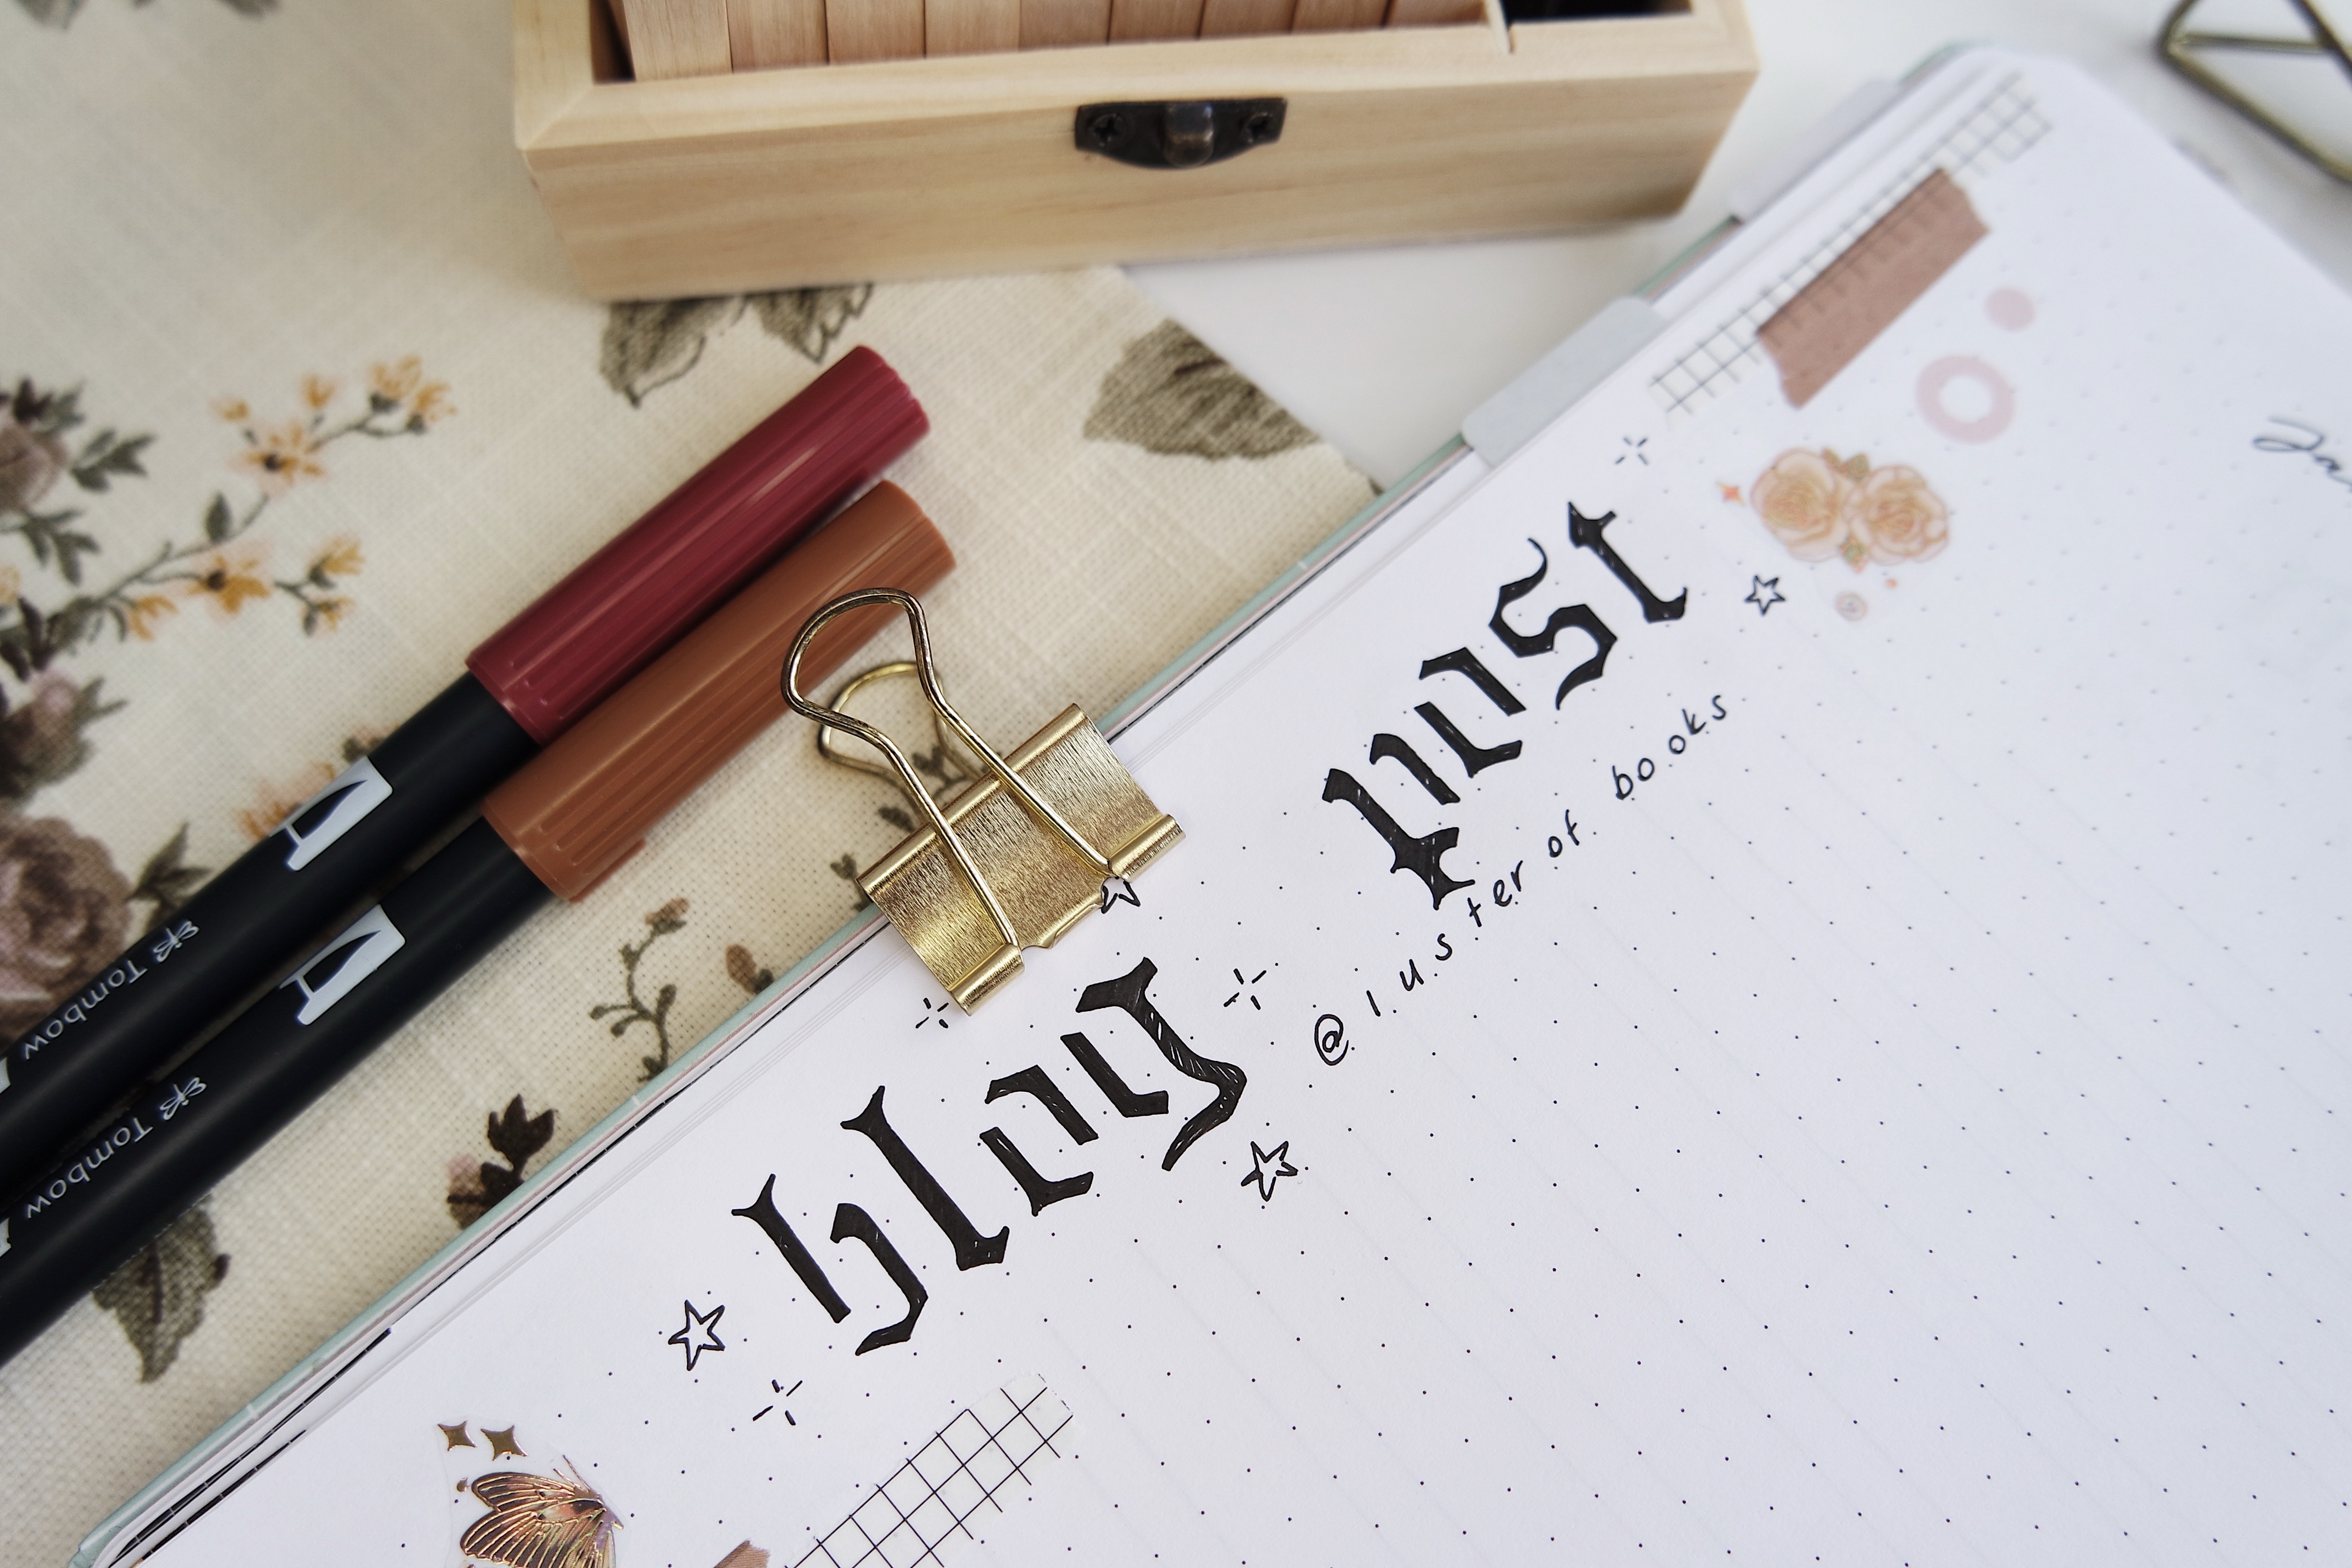 blog post
@lusterofbooks
Tombow
Tombow